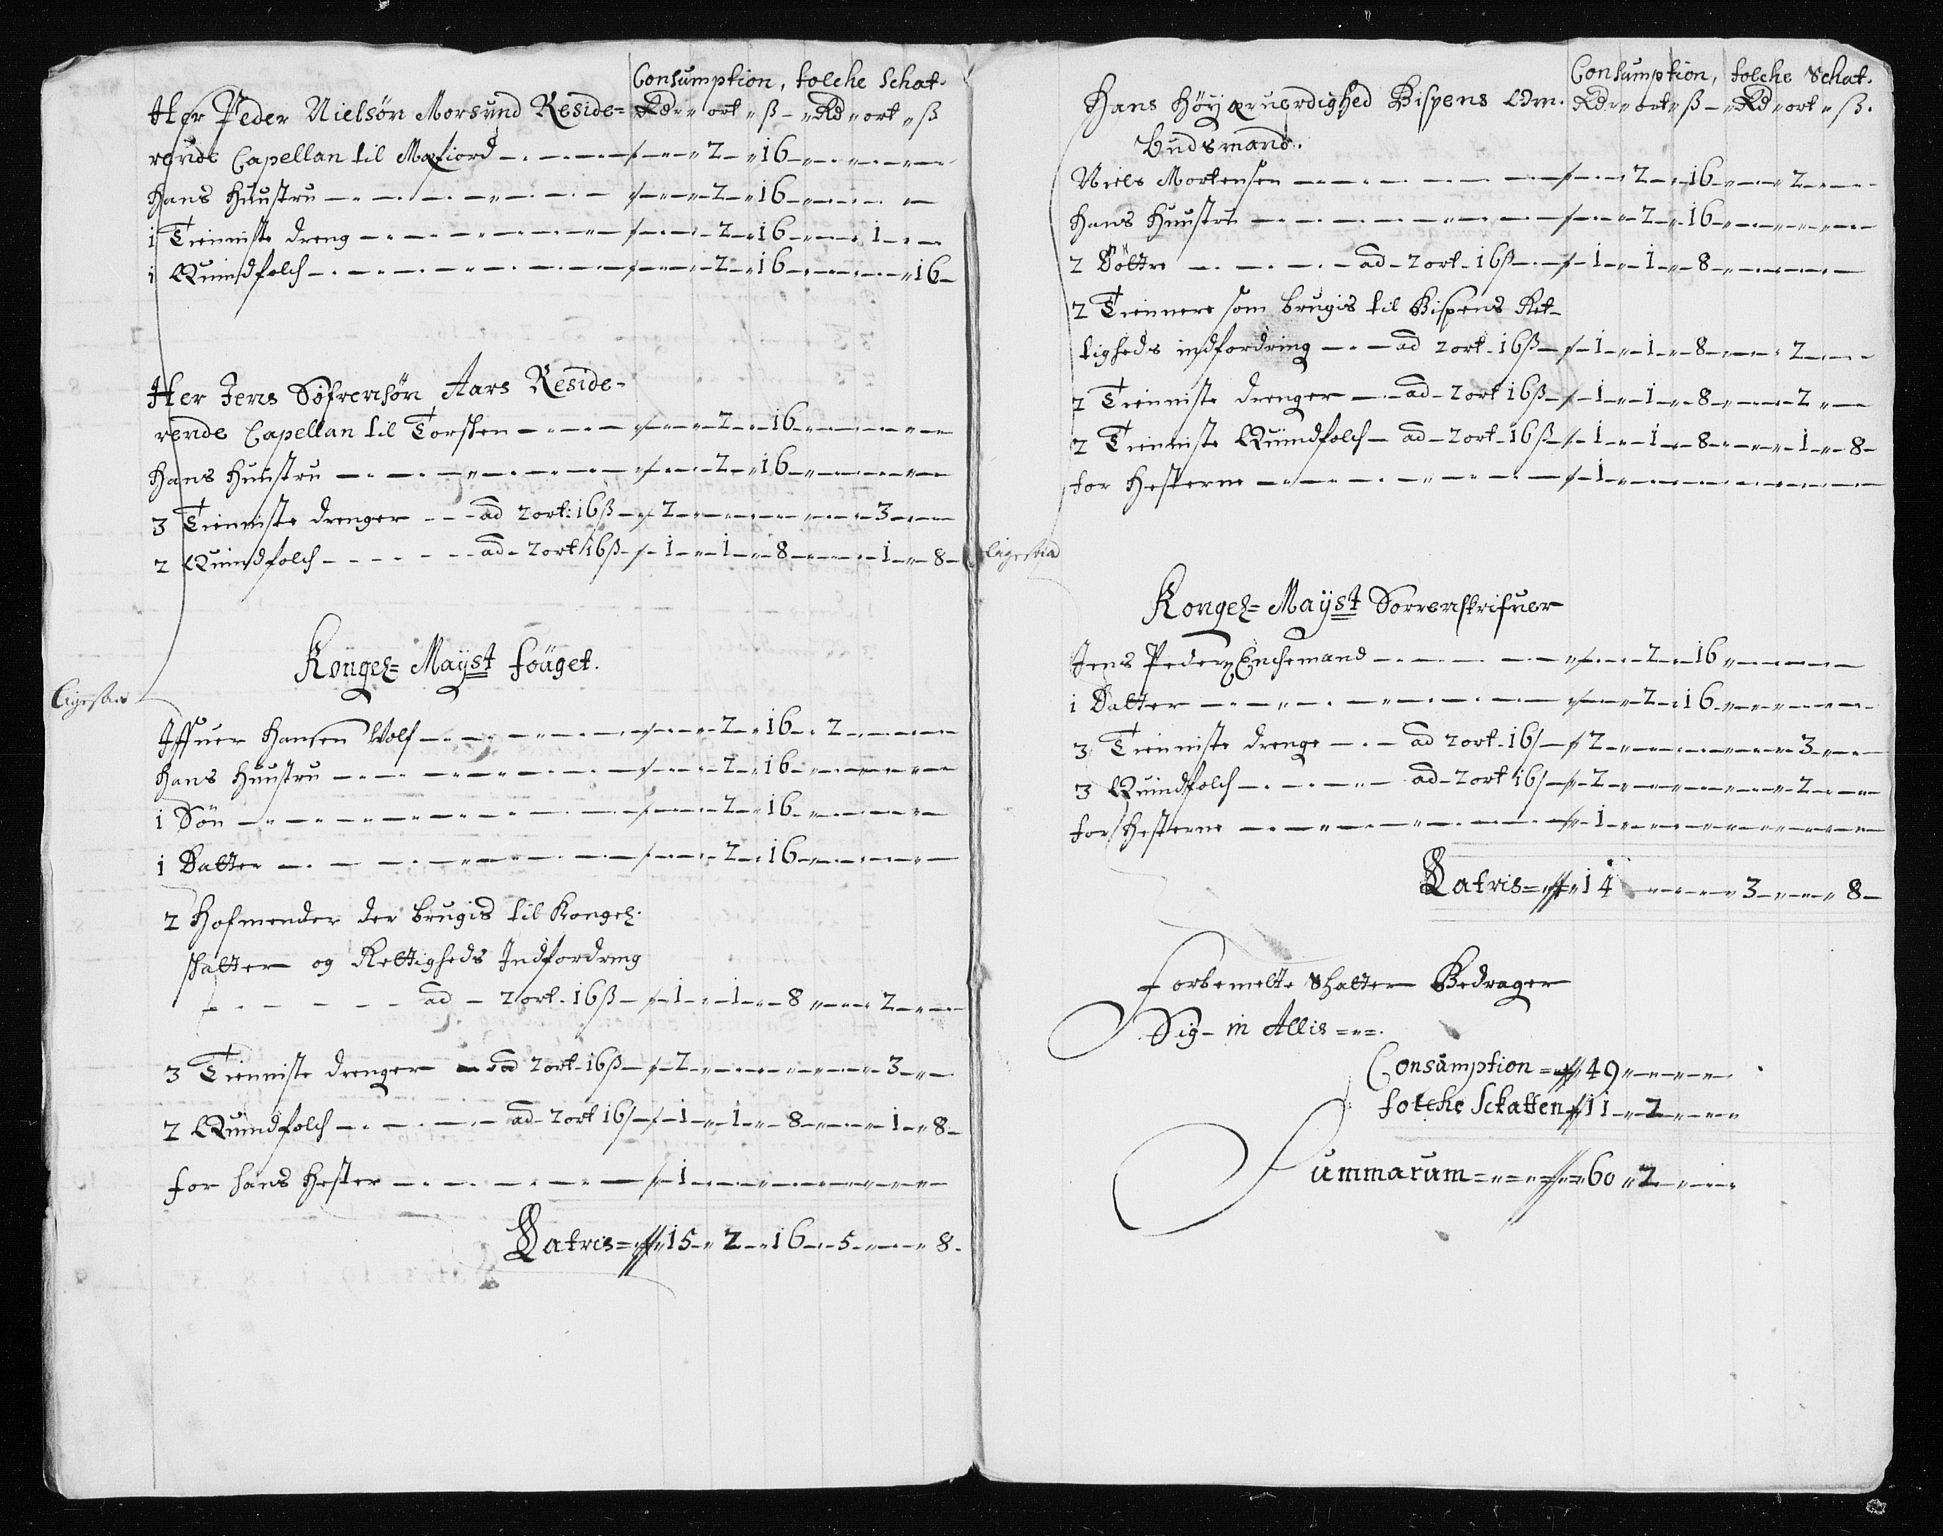 Consumption, folche Schat.
Her Peder Nielsøn Morsund Reside= Rd „ ort „ ß – „ Rd „ ort „ ß
rende Capellan til Mefiord – 2 – 16
Hans Huustru – 2 – 16
1 Tienniste dreng – 2 – 16 – 1
1 Quindfolch – 2 – 16 – 16
Her Jens Søfrensøn Aars Reside-
rende Capellan til Torsken – 2 – 16
Hans Huustru – 2 – 16
3 Tienniste drenger – ad 2 ort 16 ß – 2 – 3
2 Quindfolch – ad 2 ort 16 ß – 1 – 1 – 8 – 1 – 8
Kongel= Mayst fouget.
Ligesaa
Iffuer Hansen Wolf – 2 – 16 – 2
Hans Huustru – 2 – 16
1 Søn – 2 – 16
1 Datter – 2 – 16
2 Hofmender der brugis til Kongel.
skatter og Rettigheds Indfordring
– ad – 2 ort 16 ß – 1 – 1 – 8 – 2
3 Tienniste drenger – ad 2 ort 16 ß – 2 – 3
2 Quindfolch – ad 2 ort 16 ß – 1 – 1 – 8 – 1 – 8
for hans Hester – 1
Latris = 15 – 2 – 16 – 5 – 8
Consumption, folche Schat.
Hans Høyæruerdighed Bispens Om- Rd „ ort „ ß – „ Rd „ ort „ ß.
budsmand.
Niels Mortensen – 2 – 16 – 2
Hans Huustru – 2 – 16
2 Døttre – ad 2 ort 16 ß – 1 – 1 – 8
2 Tiennere som brugis til Bispens Ret-
tigheds indfordring – ad 2 ort 16 ß – 1 – 1 – 8 – 2
2 Tienniste drenger – ad 2 ort 16 ß – 1 – 1 – 8 – 2
2 Tienniste Quindfolch – ad 2 ort 16 ß – 1 – 1 – 8 – 1 – 8
for Hesterne – 1
Ligesaa
Kongel= Mayst Sorrenskrifuer
Jens Peders Enchemand – 2 – 16
1 Datter – 2 – 16
3 Tienniste drenge – ad 2 ort 16 ß – 2 – 3
3 Quindfolch – ad 2 ort 16 ß – 2 – 2
for Hesterne – 1
Latris = 14 – 3 – 8
Forbemelte Schatter Bedrager
Sig in Allis =
Consumption = 49
folche Schatten 11 – 2
Summarum = 60 – 2